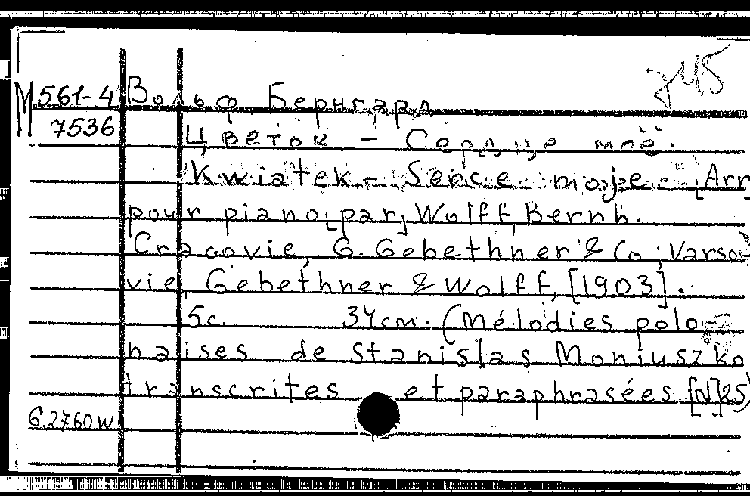 з45
М 561-4 Вольф, Бернгард
7536 Цветок – Сердце моё.
Kwiatek – Serce moje. [Arr.
pour piano, par] Wolff, Bernh.
Cracovie, G. Gebethner & Co; Varso-
vie, Gebethner & Wolff, [1903].
5c. 34cm. (Mélodies polo-
naises de Stanislas Moniuszko
transcrites et paraphrasées [N]25)
G.2760W